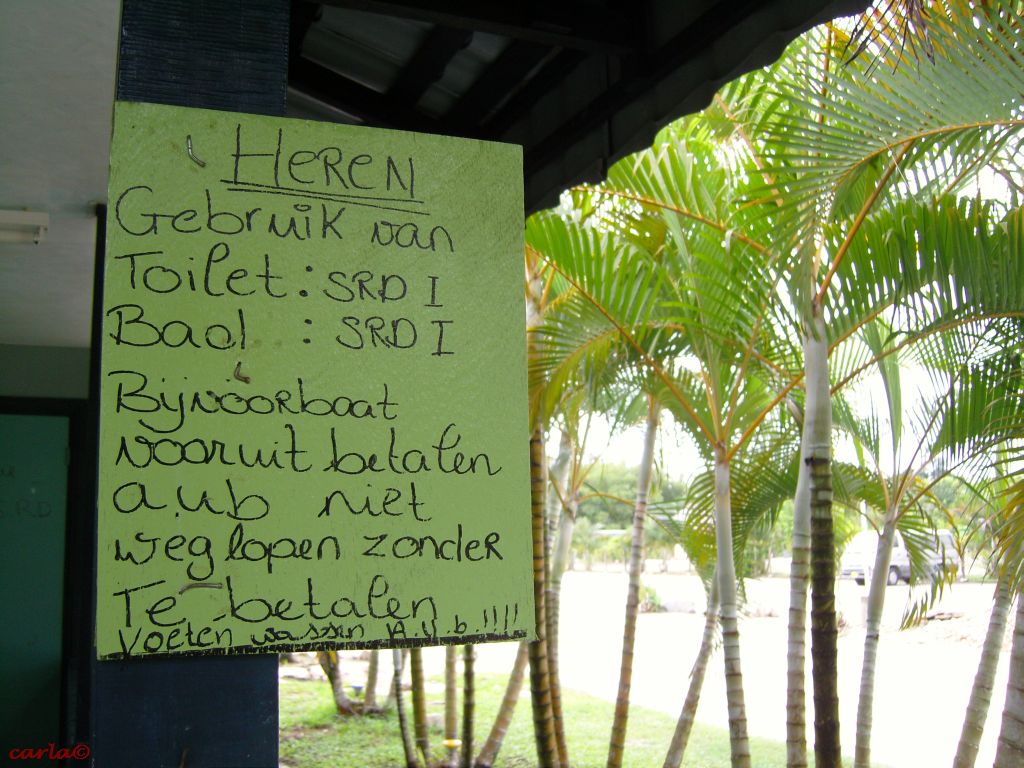 HEREN
Gebruik van
Toilet : SRD 1
Bad : SRD 1
Bijvoorbaat
vooruit betalen
a.u.b niet
weg lopen zonder
Te betalen
Voeten wassen A.U.b.!!!!
SRD
carla©